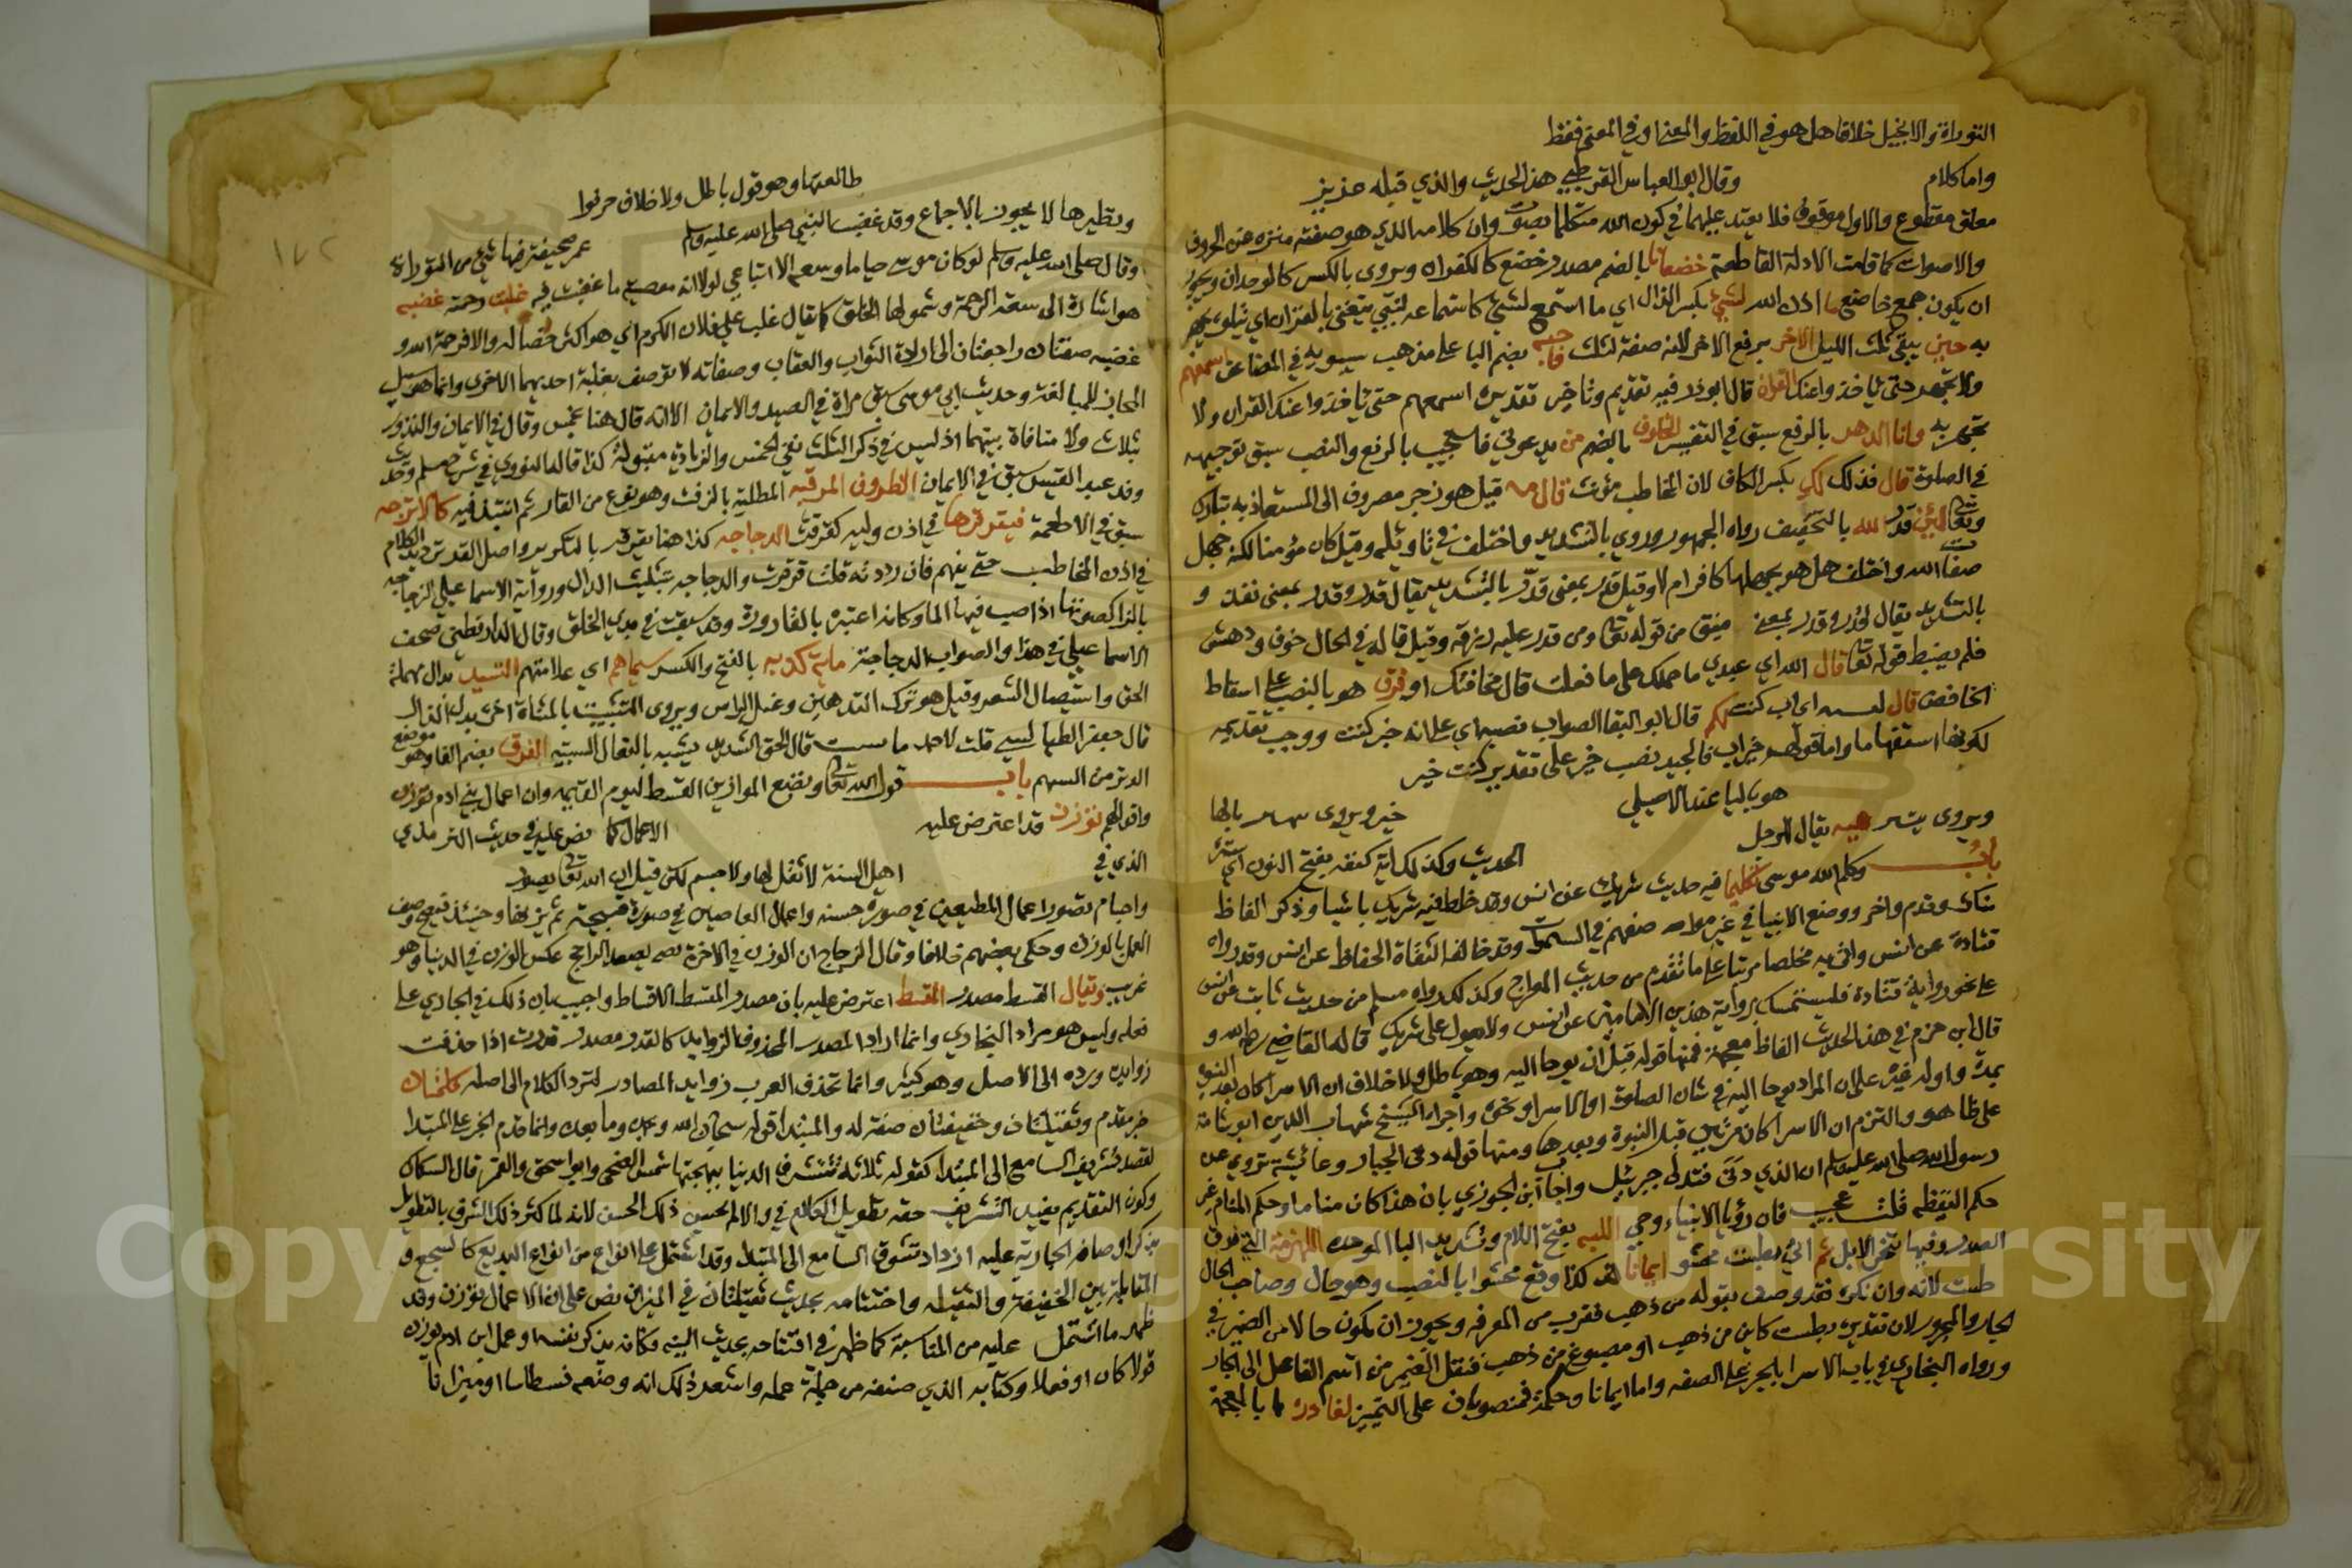 التوراة والانجيل خلاقا هل هو في اللفظ والمعنى او في المعنى فقط
واما كلام وقال ابو العباس القرطبي هذا الحديث والذي قبله
معلق مقطوع والاول موقوف فلا يعتد عليهما في كون الله متكلما بصوت وان كلامه الذي هو صفته منزه عن الحروف
والاصوات كما قامت الادلة القاطعة خضعانا بالضم مصدر خضع كالكفران ويروى بالكسر كالوجدان ويجوز
ان يكون جمع خاضع ما اذن الله لشيء بكسر الذال اي ما استمع لشيء كاستماعه لنبي يتغنى بالقران اي يتلوه يجهر
به حين يبقى ثلث الليل الاخر برفع الاخر لانه صفة لثلث بضم البا على مذهب سيبويه في المضاعف اسمعهم
ولا تجهر حتى ياخذوا عنك القران قال ابو ذر فيه تقديم وتاخير تقديره اسمعهم حتى ياخذوا عنك القران ولا
تجهر به وانا الدهر بالرفع سبق في التفسير الخلوف بالضم من يدعوني فاستجيب بالرفع والنصب سبق توجيهه
في الصلوة قال فذلك لك بكسر الكاف لان المخاطب مؤنث قال مه قيل هو زجر مصروف الى المستعاذ به تبارك
وتعالى لئن قدر الله بالتخفيف رواه الجمهور وروي بالتشديد واختلف في تاويله وقيل كان مؤمنا لكنه جهل
صفات الله واختلف هل هو بجهلها كافر ام لا وقيل قدر بمعنى قدّر بالتشديد يقال قدر وقدر بمعنى نفذ و
بالتشديد يقال قدر وقدر بمعنى ضيق من قوله تعالى ومن قدر عليه رزقه وقيل قاله في الحال خوف ودهش
فلم يضبط قوله تعالى قال الله اي عبدي ما حملك على ما فعلت قال مخافتك او فرق هو بالنصب على اسقاط
الخافض قال اي اب كنت لكم قال ابو البقا الصواب نصب اي على انه خبر كنت ووجب تقديمه
لكونها استفهاما واما قولهم خير اب فالجيد نصب خير على تقدير كنت خير
ويروى هو بالياء عند الاصيلي خير ويروى بالها
يقال الرجل
باب وكلم الله موسى تكليما الحديث وكذلك اية كنفه بفتح النون اي ستره
فيه حديث شريك عن انس وقد خلط فيه شريك باشيا وذكر الفاظ
وقدم واخر ووضع الانبيا في غير مواضعهم في السموات وقد خالف الثقاة الحفاظ عن انس وقد رواه
قتادة عن انس واتى به مخلصا مرتبا على ما تقدم من حديث المعراج وكذلك رواه مسلم من حديث ثابت عن انس
على نحو رواية قتادة فليستمسك برواية هذين الامامين عن انس ولا يعول على شريك قاله القاضي رحمه الله و
قال ابن حزم في هذا الحديث الفاظ معجمة فمنها قوله قبل ان يوحا اليه وهو باطل ولا خلاف ان الاسرا كان بعد النبوة
بمدة واوله غيره على ان المراد يوحا اليه في شان الصلوة او الاسرا او نحوه واجراه الشيخ شهاب الدين ابو شامة
على ظاهره والتزم ان الاسرا كان مرتين قبل النبوة وبعدها ومنها قوله دنى الجبار وعائشة تروي عن
رسول الله صلى الله عليه وسلم ان الذي دنى فتدلى جبريل واجاب ابن الجوزي بان هذا كان مناما وحكم المنام غير
حكم اليقظة قلت عجيب فان رؤيا الانبياء وحي اللبه بفتح اللام وتشديد البا الموحده اللهزمة التي فوق
الصدر وفيها تنحر الابل ثم اتى بطست محشو ايمانا كذا وقع محشوا بالنصب وهو حال وصاحب الحال
طست لانه وان نكرة فقد وصف بقوله من ذهب فقرب من المعرفه ويجوز ان يكون حالا من الضمير في
الجار والمجرور لان تقديره بطست كاين من ذهب او مصبوغ من ذهب فنقل الضمير من اسم الفاعل الى الجار
ورواه البخاري في باب الاسرا بالجر على الصفه واما ايمانا وحكمة فمنصوبان على التمييز لغاديده بالمعجمة
طالعها وهو قول باطل ولا خلاف حرفوا
ونظيرها لا يجوز بالاجماع وقد غضب النبي صلى الله عليه وسلم عمر صحيفة فيها شيء من التوراة
وقال صلى الله عليه وسلم لو كان موسى حيا ما وسعه الا اتباعي لولا انه معصية ما غضب فيه غلبت رحمته غضبه
هو اشارة الى سعة الرحمة وشمولها الخلق كما يقال غلب على فلان الكرم اي هو اكثر خصاله والا فرحمة الله و
غضبه صفتان راجعتان الى ارادة الثواب والعقاب وصفاته لا توصف بغلبة احديهما الاخرى وانما هو سبيل
المجاز للمبالغة وحديث ابي موسى سبق مراة في الصيد والايمان الا انه قال هنا خمس وقال في الايمان والنذور
ثلاث ولا منافاة بينهما اذ ليس في ذكر الثلث نفي الخمس والزيادة مقبولة كذا قاله النووي في شرح مسلم وحديث
وفد عبد القيس سبق في الايمان الظروف المزفته المطلية بالزفت وهو نوع من القار ثم انتبذ فيه كالاترجه
سبق في الاطعمة فيقرقرها في اذن وليه كقرقرة الدجاجه كذا هنا يقرقر بالتكرير واصل القر ترديد الكلام
في اذن المخاطب حتى يفهم فان رددته قلت قرقرت والدجاجه بتثليث الدال ورواية الاسماعيلي الزجاجه
بالزا كصوتها اذا صب فيها الما وكانه اعتبره بالقارورة وقد سبقت في بدي الخلق وقال الدارقطني صحف
الاسماعيلي في هذا والصواب الدجاجة ماية كذبه بالفتح والكسر سيماهم اي علامتهم التسبيد بدال مهملة
الحق واستيصال الشعر وقيل هو ترك التدهين وغسل الراس ويروى التسبيت بالمثناة اخره بدل الدال
قال جعفر الطيالسي قلت لاحمد ما التسبيت قال الحق الشديد يشبه بالنعال السبتيه الفرق بضم الفا وهو موضع
الوتر من السهم باب قول الله تعالى ونضع الموازين القسط ليوم القيمه وان اعمال بني ادم توزن
واقوالهم توزن قد اعترض عليه الاعمال كما نص عليه في حديث الترمذي
الذي في اهل السنة لا ثقل لها ولا جسم لكن قيل ان الله تعالى يصور
واجسام تصور اعمال المطيعين في صورة حسنه واعمال العاصين في صورة قبيحة ثم يزنها وحينئذ فيصح وصف
العمل بالوزن وحكى بعضهم خلافا وقال الزجاج ان الوزن في الاخرة يصعد الراجح عكس الوزن في الدنيا وهو
غريب ويقال القسط مصدر المقسط اعترض عليه بان مصدر المقسط الاقساط واجيب بان ذلك في الجاري على
فعله وليس هو مراد البخاري وانما اراد المصدر المحذوف الزوايد كالقدر مصدر قدرت اذا حذفت
زوايده ورده الى الاصل وهو كثير وانما تحذف العرب زوايد المصادر لترد الكلام الى اصله كلمتان
خبر مقدم وثقيلتان وخفيفتان صفة له والمبتدا قوله سبحان الله وبحمده وما بعده وانما قدم الخبر على المبتدا
لقصد تشويق السامع الى المبتدا كقوله ثلاثة تشرق الدنيا ببهجتها شمس الضحى وابو اسحق والقمر قال السكاكي
وكون التقديم يفيد التشويق حقه تطويل الكلام في والا لم يحسن ذلك الحسن لانه لما كثر ذلك الشوق بالتطويل
بذكر اوصافه الجارية عليه ازداد تشوق السامع الى المبتدا وقد اشتمل على انواع من انواع البديع كالسجع و
المقابلة بين الخفيفة والثقيله واختتامه بحديث ثقيلتان في الميزان نص على ان الاعمال توزن وقد
ظهر ما اشتمل عليه من المناسبة كما ظهر في افتتاحه بحديث النيه وكانه يذكر نفسه وعمل ابن ادم يوزن
قولا كان او فعلا وكتابه الذي صنفه من جملة عمله واستعد ذلك انه وضعه قسطاسا وميزانا
١٧٢
Copyright © King Saud University